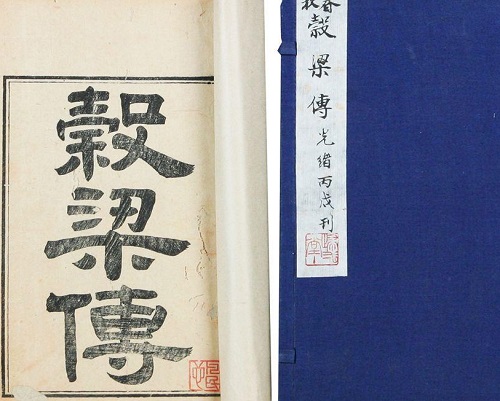 穀梁傳
春秋穀梁傳光緒丙戌刊